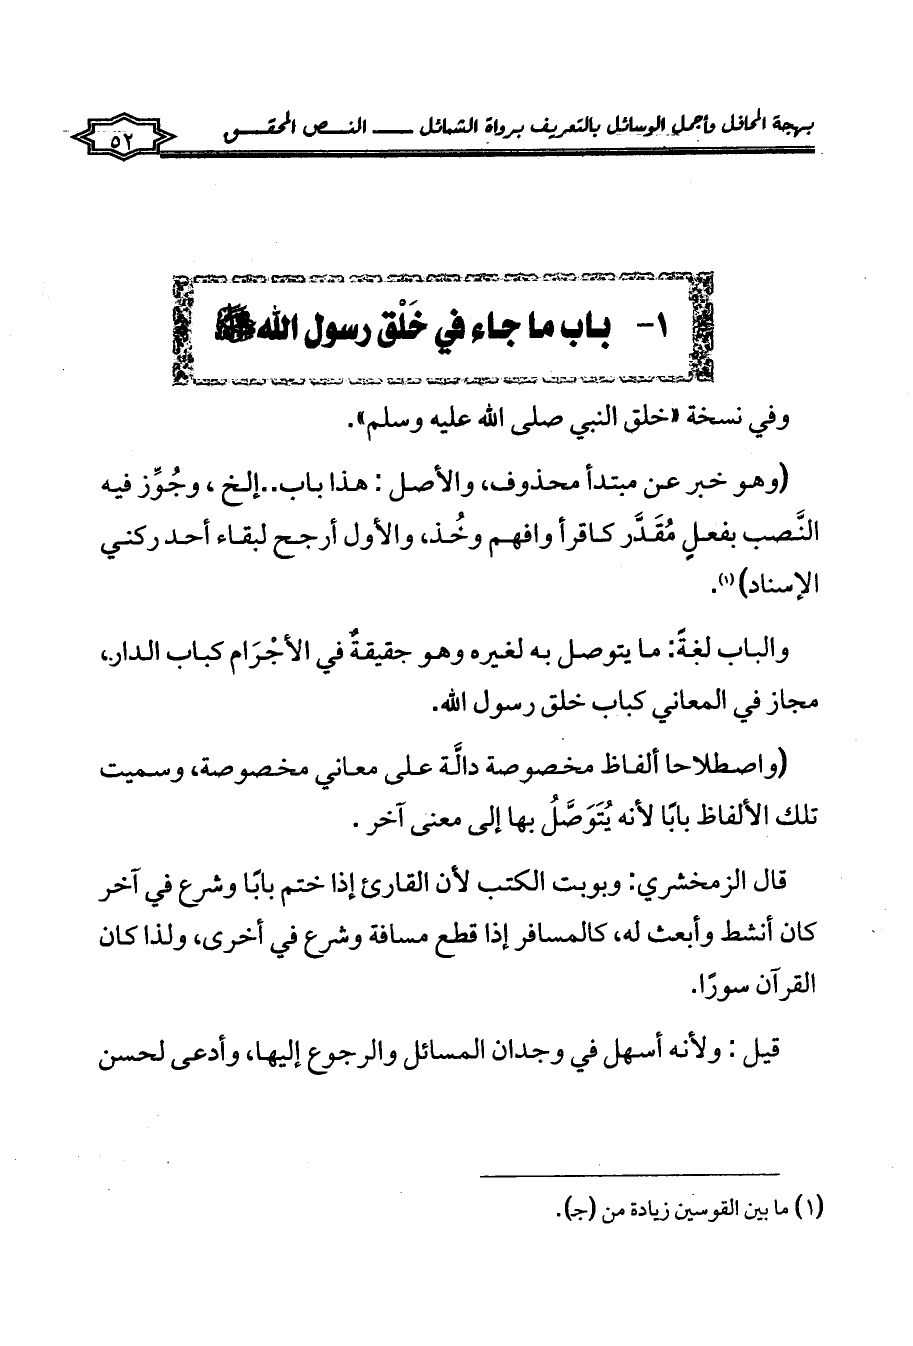 بهجة المحافل وأجمل الوسائل بالتعريف برواة الشمائل ـــ النص المحقق
٥٢
١- باب ما جاء في خَلْق رسول الله ﷺ
وفي نسخة «خلق النبي صلى الله عليه وسلم».
(وهو خبر عن مبتدأ محذوف، والأصل : هذا باب..إلخ ، وجُوِّز فيه
النَّصب بفعلٍ مُقَدَّر كاقرأ وافهم وخُذ، والأول أرجح لبقاء أحد ركني
الإسناد)(١).
والباب لغةً: ما يتوصل به لغيره وهو حقيقةٌ في الأجْرَام كباب الدار،
مجاز في المعاني كباب خلق رسول الله.
(واصطلاحا ألفاظ مخصوصة دالَّة على معاني مخصوصة، وسميت
تلك الألفاظ بابًا لأنه يُتَوَصَّلُ بها إلى معنى آخر .
قال الزمخشري: وبوبت الكتب لأن القارئ إذا ختم بابًا وشرع في آخر
كان أنشط وأبعث له، كالمسافر إذا قطع مسافة وشرع في أخرى، ولذا كان
القرآن سورًا.
قيل : ولأنه أسهل في وجدان المسائل والرجوع إليها، وأدعى لحسن
(١) ما بين القوسين زيادة من (جـ).